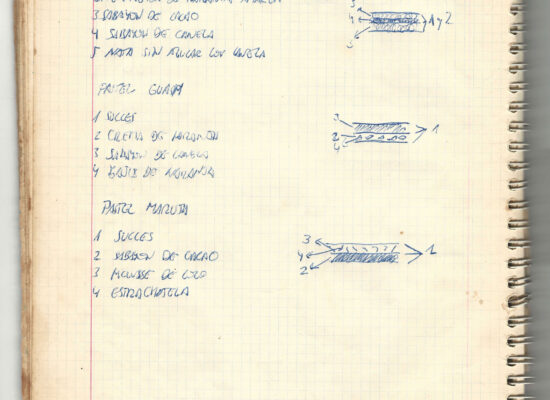 3 SABAYON DE CACAO
4 SABAYON DE CANELA
5 NATA SIN AZUCAR CON CANELA
3
4
1 y 2
5
PASTEL
1 SUCCES
2 CREMA DE NARANJA
3 SABAYON DE CANELA
4 DE NARANJA
3
2
4
1
PASTEL MARUJA
1 SUCCES
2 SABAYON DE CACAO
3 MOUSSE DE
4
3
4
2
1